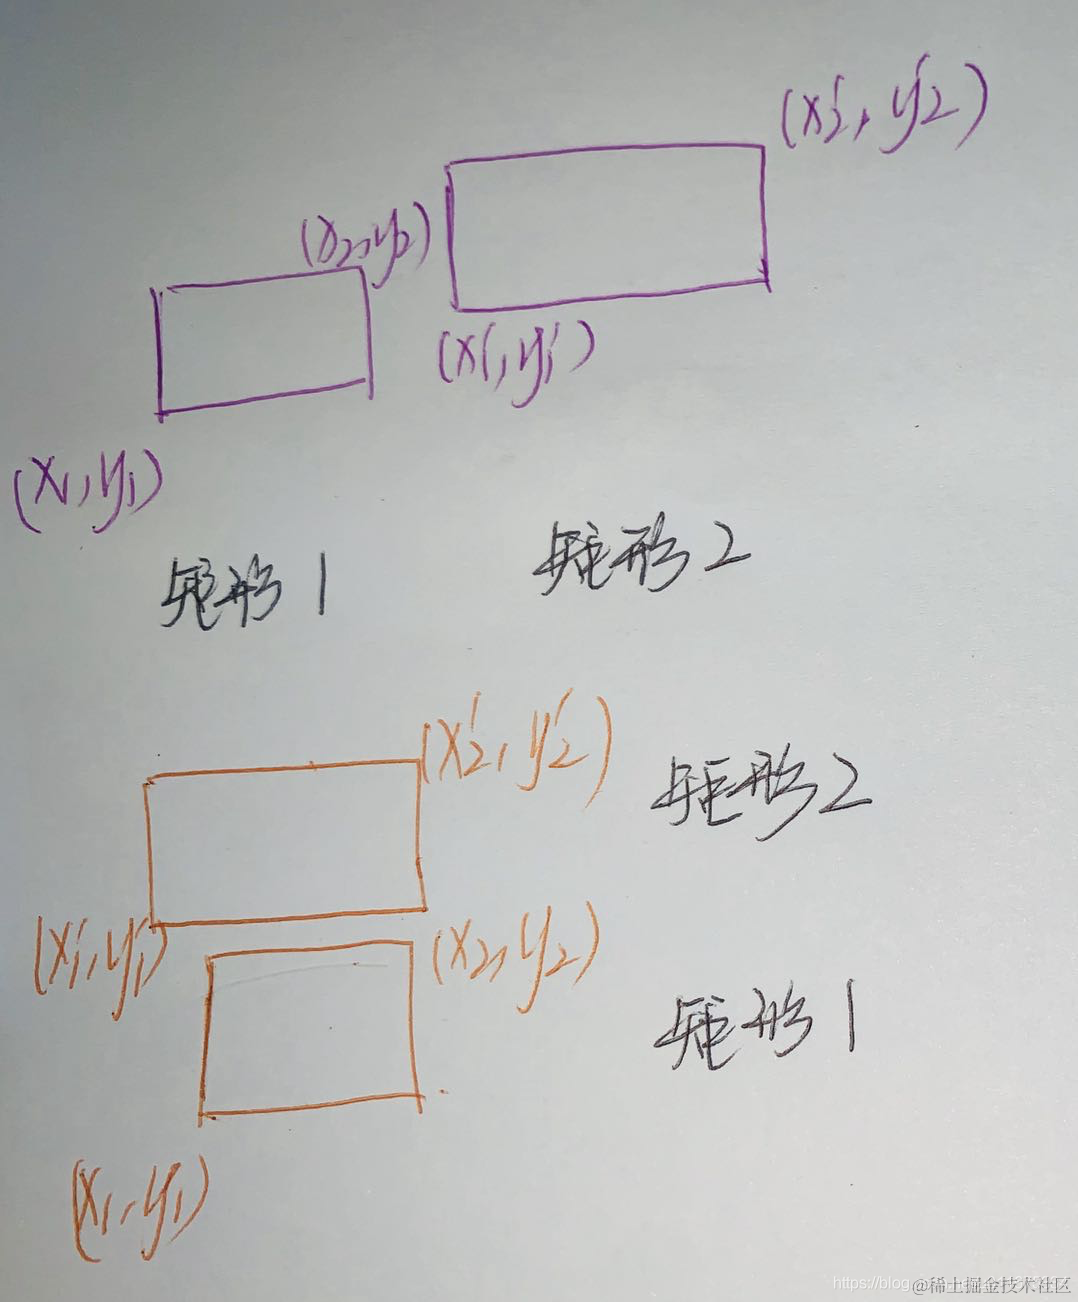 (x₂′, y₂′)
(x₂, y₂)
(x₁′, y₁′)
(x₁, y₁)
矩形 2
矩形 1
(x₂′, y₂′)
矩形 2
(x₁′, y₁′)
(x₂, y₂)
矩形 1
(x₁, y₁)
https://blog.
@稀土掘金技术社区